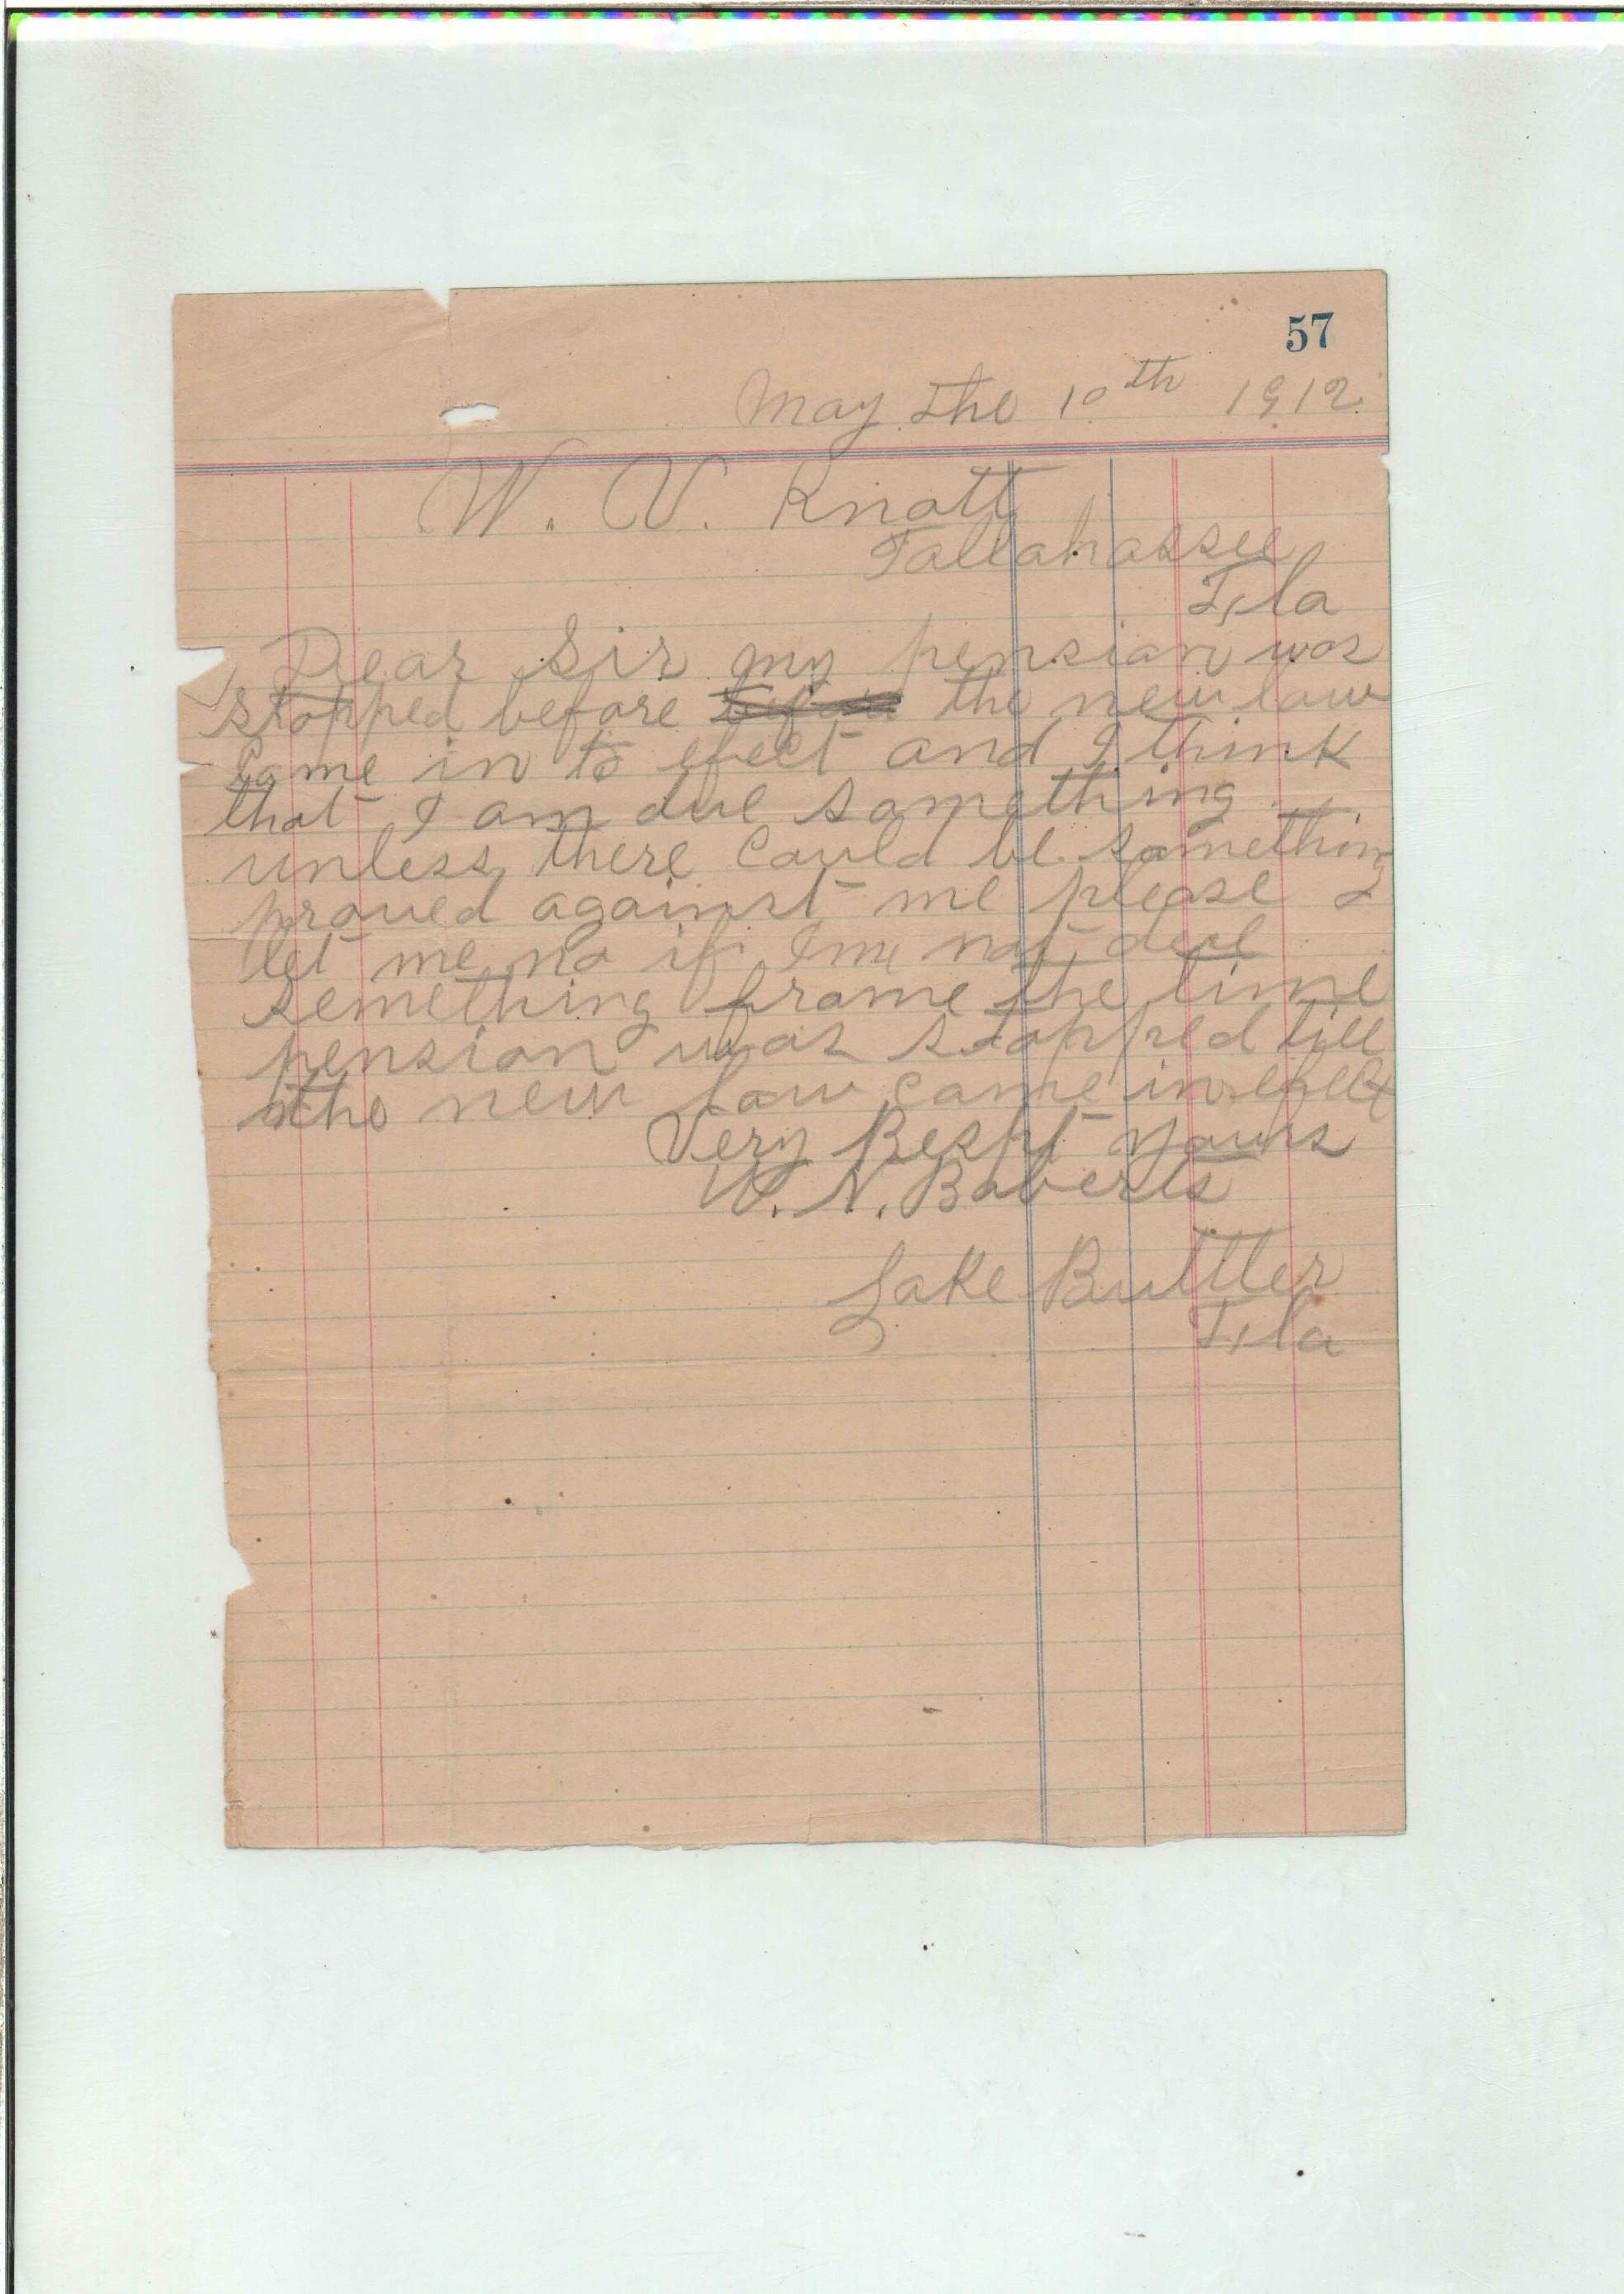 57
May the 10th 1912
W. V. Knott
Tallahassee
Fla
Dear Sir my pension was
stopped before before the new law
came in to efect and I think
that I am due something
unless there could be something
proved against me please
let me no if Im not due
something frome the time
pension was stopped till
the new law came in efect
Very Respt yours
W. N. Roberts
Lake Buttler
Fla